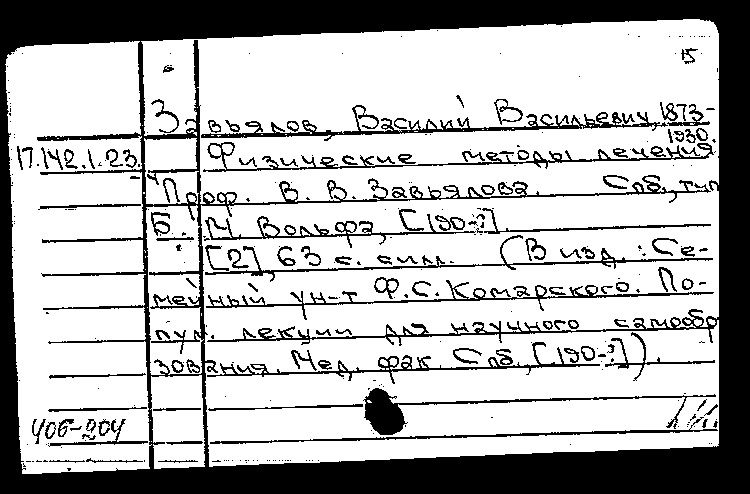 15
Завьялов, Василий Васильевич, 1873-
1930.
17.142.1.23. Физические методы лечения
Проф. В. В. Завьялова. Спб., тип
Б. М. Вольфа, [190-?].
[2], 63 с. с илл. (В изд.: Се-
мейный ун-т Ф. С. Комарского. По-
пул. лекции для научного самообр
зования. Мед. фак. Спб., [190-?]).
406-204